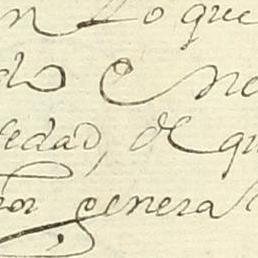 n Lo que
do ne
edad, de qu
or general